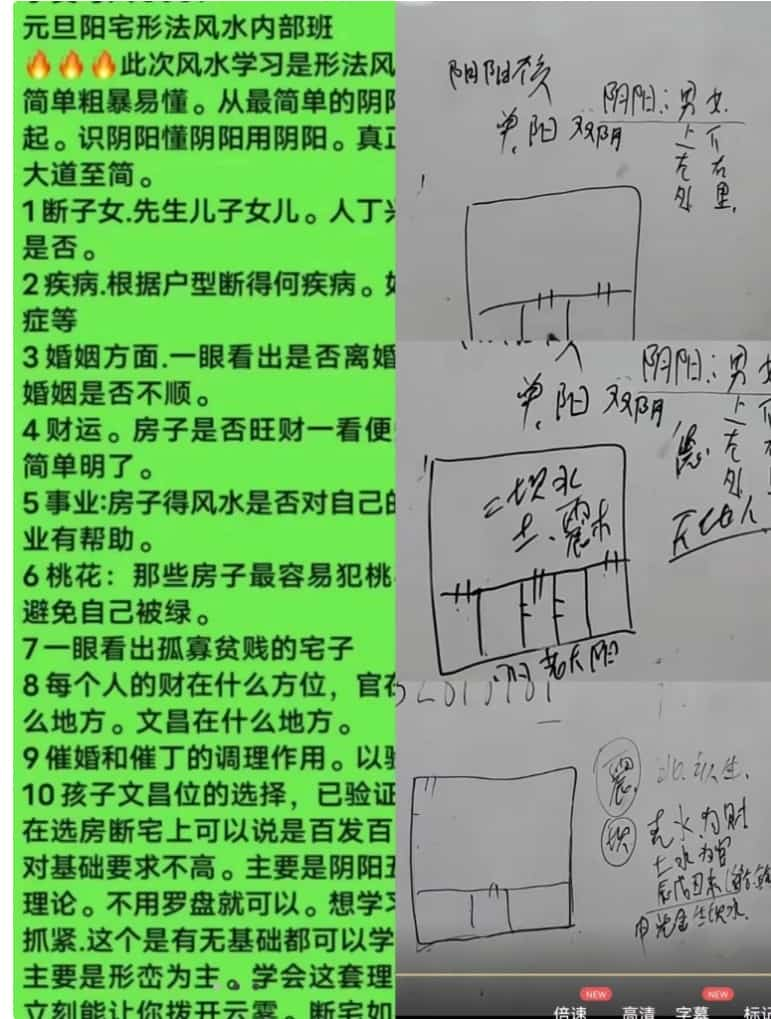 元旦阳宅形法风水内部班
🔥🔥🔥此次风水学习是形法风
简单粗暴易懂。从最简单的阴阳
起。识阴阳懂阴阳用阴阳。真正
大道至简。
1断子女.先生儿子女儿。人丁兴
是否。
2疾病.根据户型断得何疾病。如
症等
3婚姻方面.一眼看出是否离婚
婚姻是否不顺。
4财运。房子是否旺财一看便
简单明了。
5事业:房子得风水是否对自己的
业有帮助。
6桃花：那些房子最容易犯桃
避免自己被绿。
7一眼看出孤寡贫贱的宅子
8每个人的财在什么方位，官在
么地方。文昌在什么地方。
9催婚和催丁的调理作用。以验
10孩子文昌位的选择，已验证
在选房断宅上可以说是百发百
对基础要求不高。主要是阴阳五
理论。不用罗盘就可以。想学习
抓紧.这个是有无基础都可以学
主要是形峦为主。学会这套理
立刻能让你拨开云雾。断宅如
阴阳
阴阳：男女
单阳 双阴
上下
左右
外里
阴阳：男女
单阳 双阴
上
左
外
二坎水
土、震木
老大阳
震
坎
水为财
土 为官
NEW
NEW
倍速
高清
字幕
标记